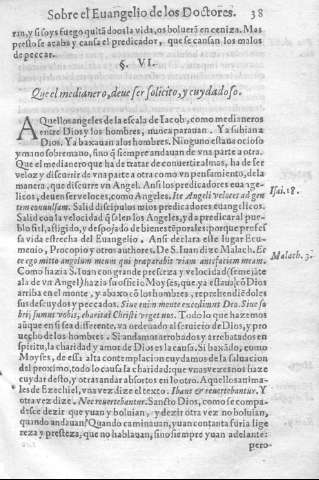 Sobre el Euangelio de los Doctores. 38
rin, y si soys fuego quitãdoos la vida, os boluerã en ceniza. Mas
presto se acaba y cansa el predicador, que se cansan los malos
de peccar.
§. VI.
Que el medianero, deue ser solicito, y cuydadoso.
AQuellos angeles de la escala de Iacob, como medianeros
entre Dios y los hombres, nunca parauan. Ya subian a
Dios. Ya baxauan a los hombres. Ninguno estaua ocioso
y mano sobre mano, sino q̃ siempre andauan de vna parte a otra.
Que el medianero que ha de tratar de conuertir almas, ha de ser
veloz y discurrir de vna parte a otra como vn pensamiento, de la
manera, que discurre vn Angel. Ansi los predicadores euãge-
licos, deuen ser veloces, como Angeles. Ite Angeli veloces ad gen
tem conuulsam. Salid discipulos mios predicadores euangelicos.
Isai. 18.
Salid con la velocidad q̃ salen los Angeles, y da predicar al pue-
blo fiel, afligido, y despojado de bienes tẽporales: porque profes
sa vida estrecha del Euangelio. Ansi declara este lugar Ecu-
menio, Procopio y otros authores. De S. Iuan dize Malach. Ec
ce ego mitto angelum meum qui præparabit viam ante faciem meam.
Malach. 3.
Como hazia S. Iuan con grande presteza y velocidad (semejãte
a la de vn Angel) hazia su officio Moyses, que ya estaua cõ Dios
arriba en el monte, y abaxo cõ los hombres, reprehendiẽdoles
sus descuydos y peccados. Siue enim mente excedimus Deo. Siue so
brij sumus vobis, charitas Christi vrget nos. Todo lo que hazemos
aũque en si sea differente, va ordenado al seruicio de Dios, y pro
uecho de los hombres. Si andamos arrobados y arrebatados en
spiritu, la charidad y amor de Dios es la causa. Si baxãdo, como
Moyses, de essa alta contemplacion cuydamos de la saluacion
del proximo, todo lo causa la charidad: que vnas vezes nos haze
cuydar desto, y otras andar absortos en lo otro. Aquellos anima-
les de Ezechiel, vna vez dize el texto. Ibant & reuertebantur. Y
otra vez dize. Nec reuertebantur. Sancto Dios, como se compa-
desce dezir que yuan y boluian, y dezir otra vez no boluian,
quando andauan? Quando caminauan, yuan con tanta furia lige
reza y presteza, que no hablauan, sino siempre yuan adelante:
pero-